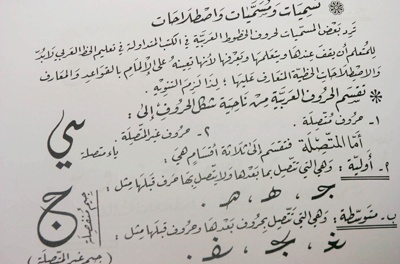 تسميات ومسميات واصطلاحات
ترد بعض المسميات لحروف الخطوط العربية في الكتب المتداولة في تعليم الخط العربي لابد
للمتعلم أن يقف عندها ويتعلمها ويعرفها لأنها تعينه على الإلمام بالقواعد والمعارف
والاصطلاحات الخطية المتعارف عليها؛ لذا لزم التنويه.
تقسم الحروف العربية من ناحية شكل الحروف إلى:
١- حروف متصلة.
٢- حروف غير المتصلة.
ياء متصلة
أما المتصلة فتقسم إلى ثلاثة أقسام هي:
أولية: وهي التي تتصل بما بعدها ولا يتصل بها حرف قبلها مثل:
جيم منفصلة
ب- متوسطة: وهي التي تتصل بحروف بعدها وحروف قبلها مثل:
(جيم غير المتصلة)